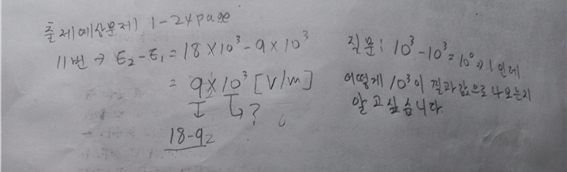 출제예상문제 1-24page
11번 → E₂-E₁ = 18×10³-9×10³
= 9×10³ [V/m]
↓ ↳?
18-9
질문: 10³-10³=10⁰⇒1인데
어떻게 10³이 결과값으로 나오는지
알고싶습니다